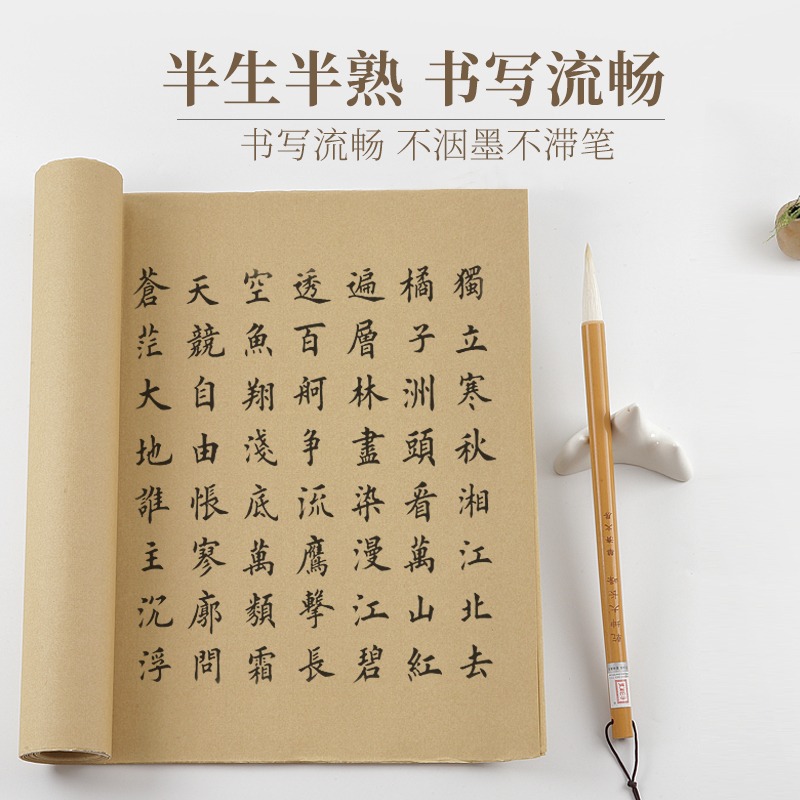 半生半熟 书写流畅
书写流畅 不洇墨不滞笔
獨立寒秋湘江北去
橘子洲頭看萬山紅
遍層林盡染漫江碧
透百舸争流鷹擊長
空魚翔淺底萬類霜
天競自由悵寥廓問
蒼茫大地誰主沉浮